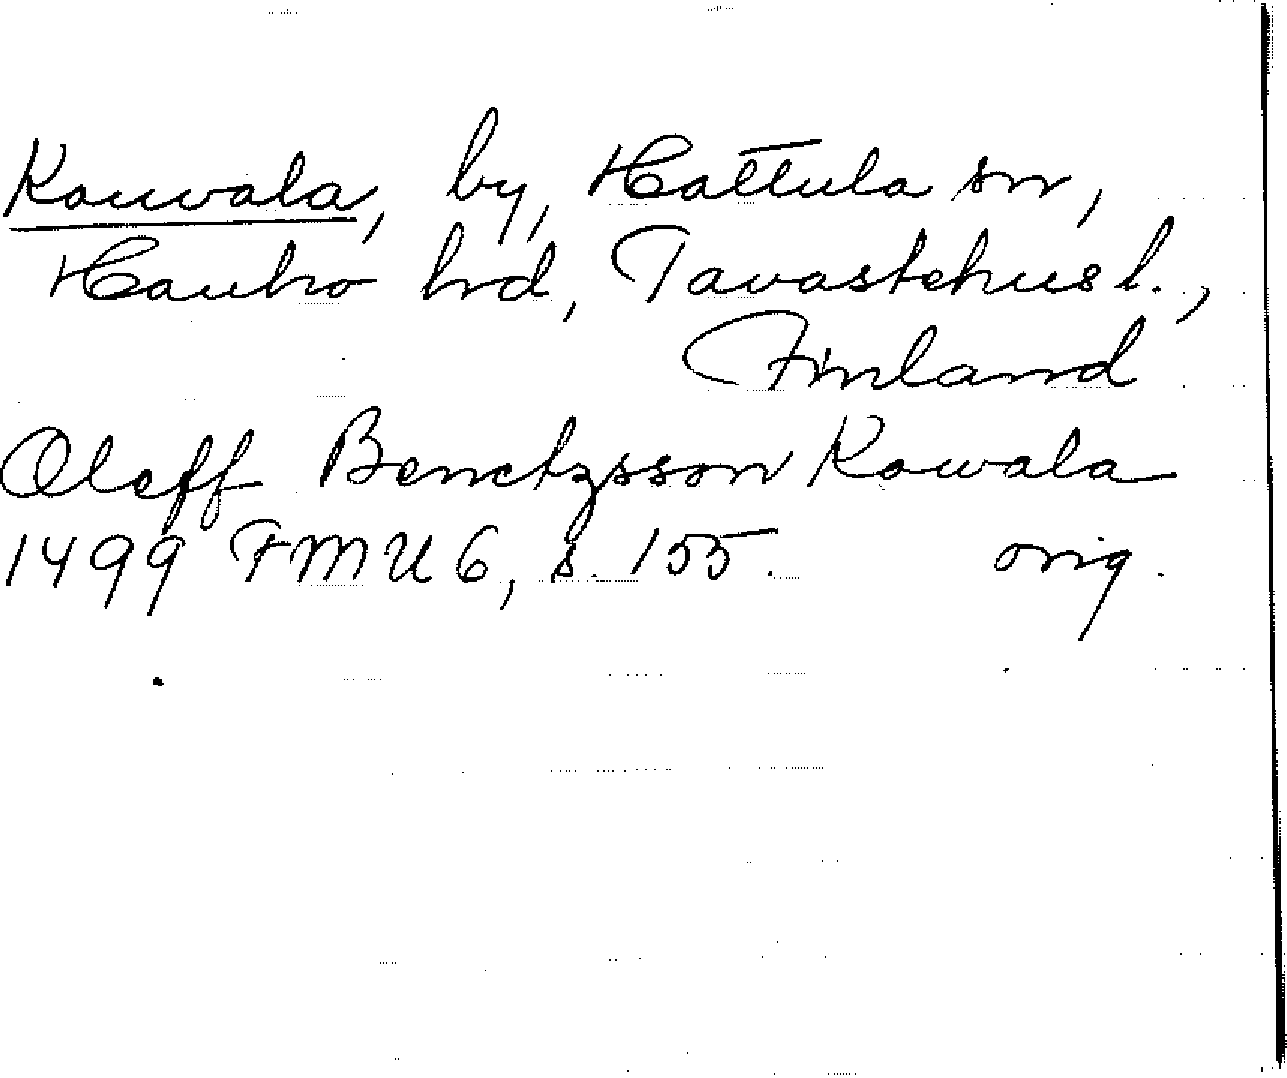 Kauvala, by, Hattula sn,
Hauho hrd, Tavastehus l.,
Finland
Oleff Benctzsson Kawala
1499 FMU 6, s. 155. orig.